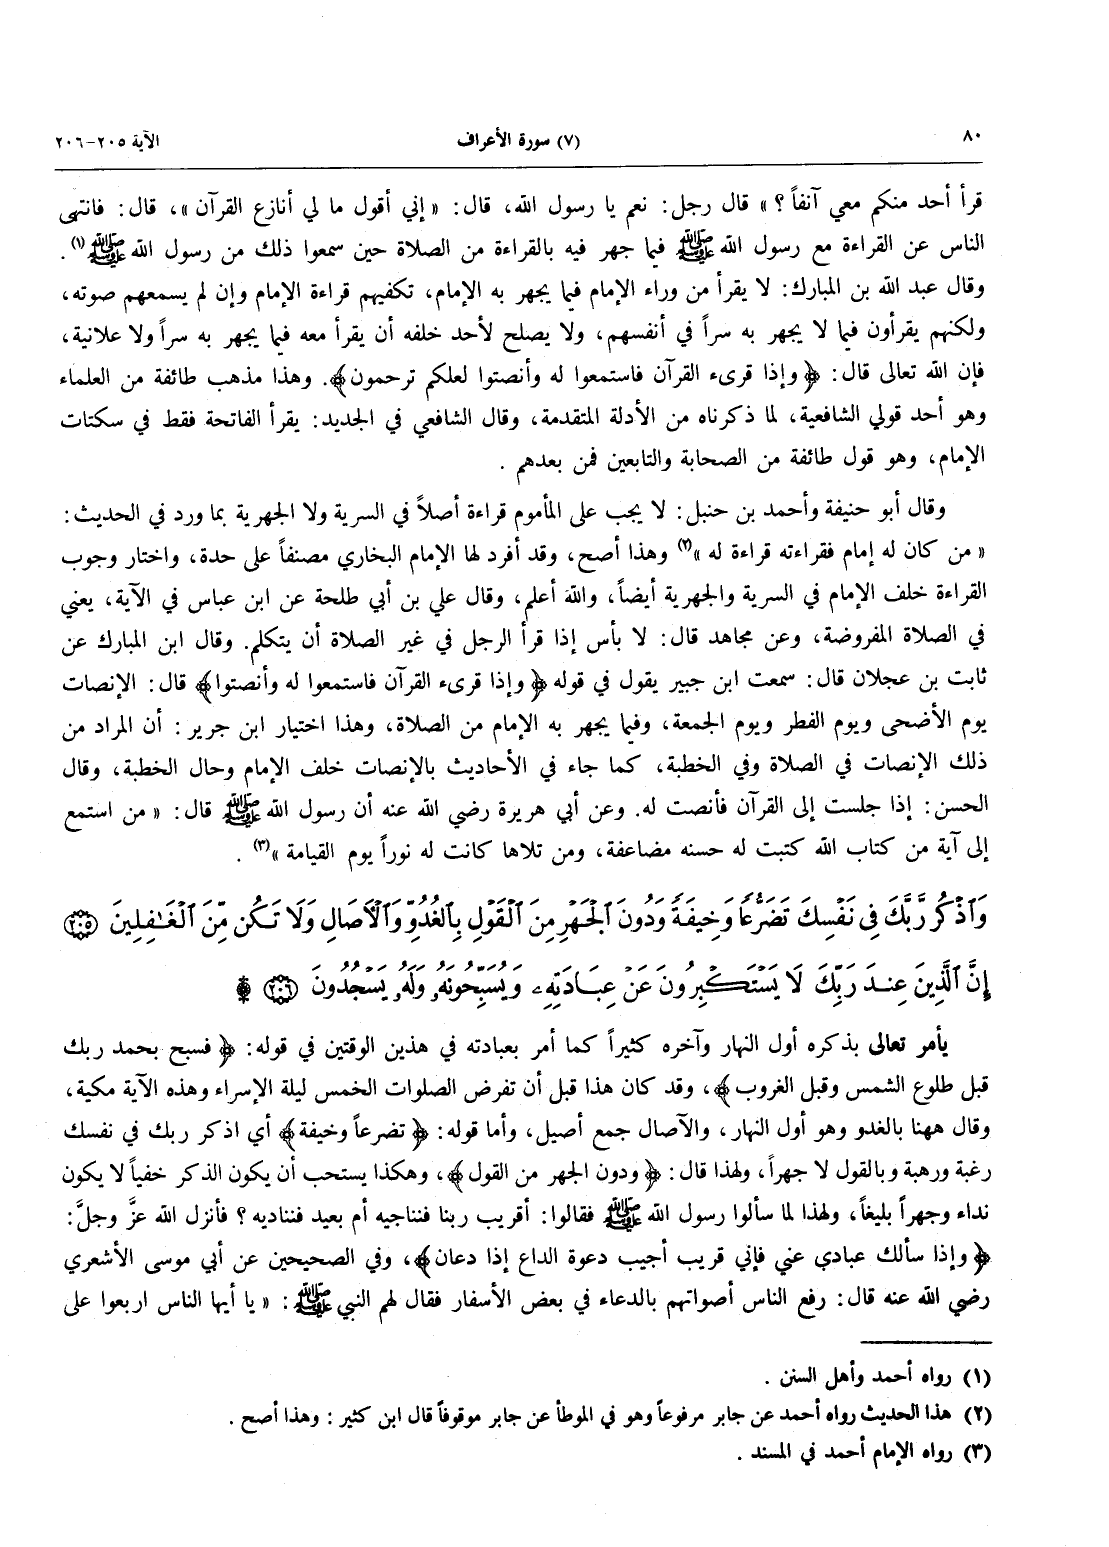 ٨٠ (٧) سورة الأعراف الآية ٢٠٥-٢٠٦
قرأ أحد منكم معي آنفاً ؟ » قال رجل: نعم يا رسول الله، قال: « إني أقول ما لي أنازع القرآن »، قال: فانتهى
الناس عن القراءة مع رسول الله ﷺ فيما جهر فيه بالقراءة من الصلاة حين سمعوا ذلك من رسول الله ﷺ (١) .
وقال عبد الله بن المبارك: لا يقرأ من وراء الإمام فيما يجهر به الإمام، تكفيهم قراءة الإمام وإن لم يسمعهم صوته،
ولكنهم يقرأون فيما لا يجهر به سراً في أنفسهم، ولا يصلح لأحد خلفه أن يقرأ معه فيما يجهر به سراً ولا علانية،
فإن الله تعالى قال: ﴿ وإذا قرىء القرآن فاستمعوا له وأنصتوا لعلكم ترحمون﴾. وهذا مذهب طائفة من العلماء
وهو أحد قولي الشافعية، لما ذكرناه من الأدلة المتقدمة، وقال الشافعي في الجديد: يقرأ الفاتحة فقط في سكتات
الإمام، وهو قول طائفة من الصحابة والتابعين فمن بعدهم .
وقال أبو حنيفة وأحمد بن حنبل: لا يجب على المأموم قراءة أصلاً في السرية ولا الجهرية بما ورد في الحديث:
« من كان له إمام فقراءته قراءة له »(٢) وهذا أصح، وقد أفرد لها الإمام البخاري مصنفاً على حدة، واختار وجوب
القراءة خلف الإمام في السرية والجهرية أيضاً، والله أعلم، وقال علي بن أبي طلحة عن ابن عباس في الآية، يعني
في الصلاة المفروضة، وعن مجاهد قال: لا بأس إذا قرأ الرجل في غير الصلاة أن يتكلم. وقال ابن المبارك عن
ثابت بن عجلان قال: سمعت ابن جبير يقول في قوله ﴿ وإذا قرىء القرآن فاستمعوا له وأنصتوا﴾ قال: الإنصات
يوم الأضحى ويوم الفطر ويوم الجمعة، وفيما يجهر به الإمام من الصلاة، وهذا اختيار ابن جرير: أن المراد من
ذلك الإنصات في الصلاة وفي الخطبة، كما جاء في الأحاديث بالإنصات خلف الإمام وحال الخطبة، وقال
الحسن: إذا جلست إلى القرآن فأنصت له. وعن أبي هريرة رضي الله عنه أن رسول الله ﷺ قال: « من استمع
إلى آية من كتاب الله كتبت له حسنه مضاعفة، ومن تلاها كانت له نوراً يوم القيامة »(٣) .
وَٱذۡكُر رَّبَّكَ فِى نَفۡسِكَ تَضَرُّعًا وَخِيفَةً وَدُونَ ٱلۡجَهۡرِ مِنَ ٱلۡقَوۡلِ بِٱلۡغُدُوِّ وَٱلۡأٓصَالِ وَلَا تَكُن مِّنَ ٱلۡغَـٰفِلِينَ ۝٢٠٥
إِنَّ ٱلَّذِينَ عِندَ رَبِّكَ لَا يَسۡتَكۡبِرُونَ عَنۡ عِبَادَتِهِۦ وَيُسَبِّحُونَهُۥ وَلَهُۥ يَسۡجُدُونَ ۝٢٠٦
يأمر تعالى بذكره أول النهار وآخره كثيراً كما أمر بعبادته في هذين الوقتين في قوله: ﴿ فسبح بحمد ربك
قبل طلوع الشمس وقبل الغروب ﴾، وقد كان هذا قبل أن تفرض الصلوات الخمس ليلة الإسراء وهذه الآية مكية،
وقال ههنا بالغدو وهو أول النهار، والآصال جمع أصيل، وأما قوله: ﴿ تضرعاً وخيفة ﴾ أي اذكر ربك في نفسك
رغبة ورهبة وبالقول لا جهراً، ولهذا قال: ﴿ ودون الجهر من القول﴾، وهكذا يستحب أن يكون الذكر خفياً لا يكون
نداء وجهراً بليغاً، ولهذا لما سألوا رسول الله ﷺ فقالوا: أقريب ربنا فنناجيه أم بعيد فنناديه ؟ فأنزل الله عزَّ وجلَّ:
﴿ وإذا سألك عبادي عني فإني قريب أجيب دعوة الداع إذا دعان﴾، وفي الصحيحين عن أبي موسى الأشعري
رضي الله عنه قال: رفع الناس أصواتهم بالدعاء في بعض الأسفار فقال لهم النبي ﷺ : « يا أيها الناس اربعوا على
(١) رواه أحمد وأهل السنن .
(٢) هذا الحديث رواه أحمد عن جابر مرفوعاً وهو في الموطأ عن جابر موقوفاً قال ابن كثير : وهذا أصح .
(٣) رواه الإمام أحمد في المسند .